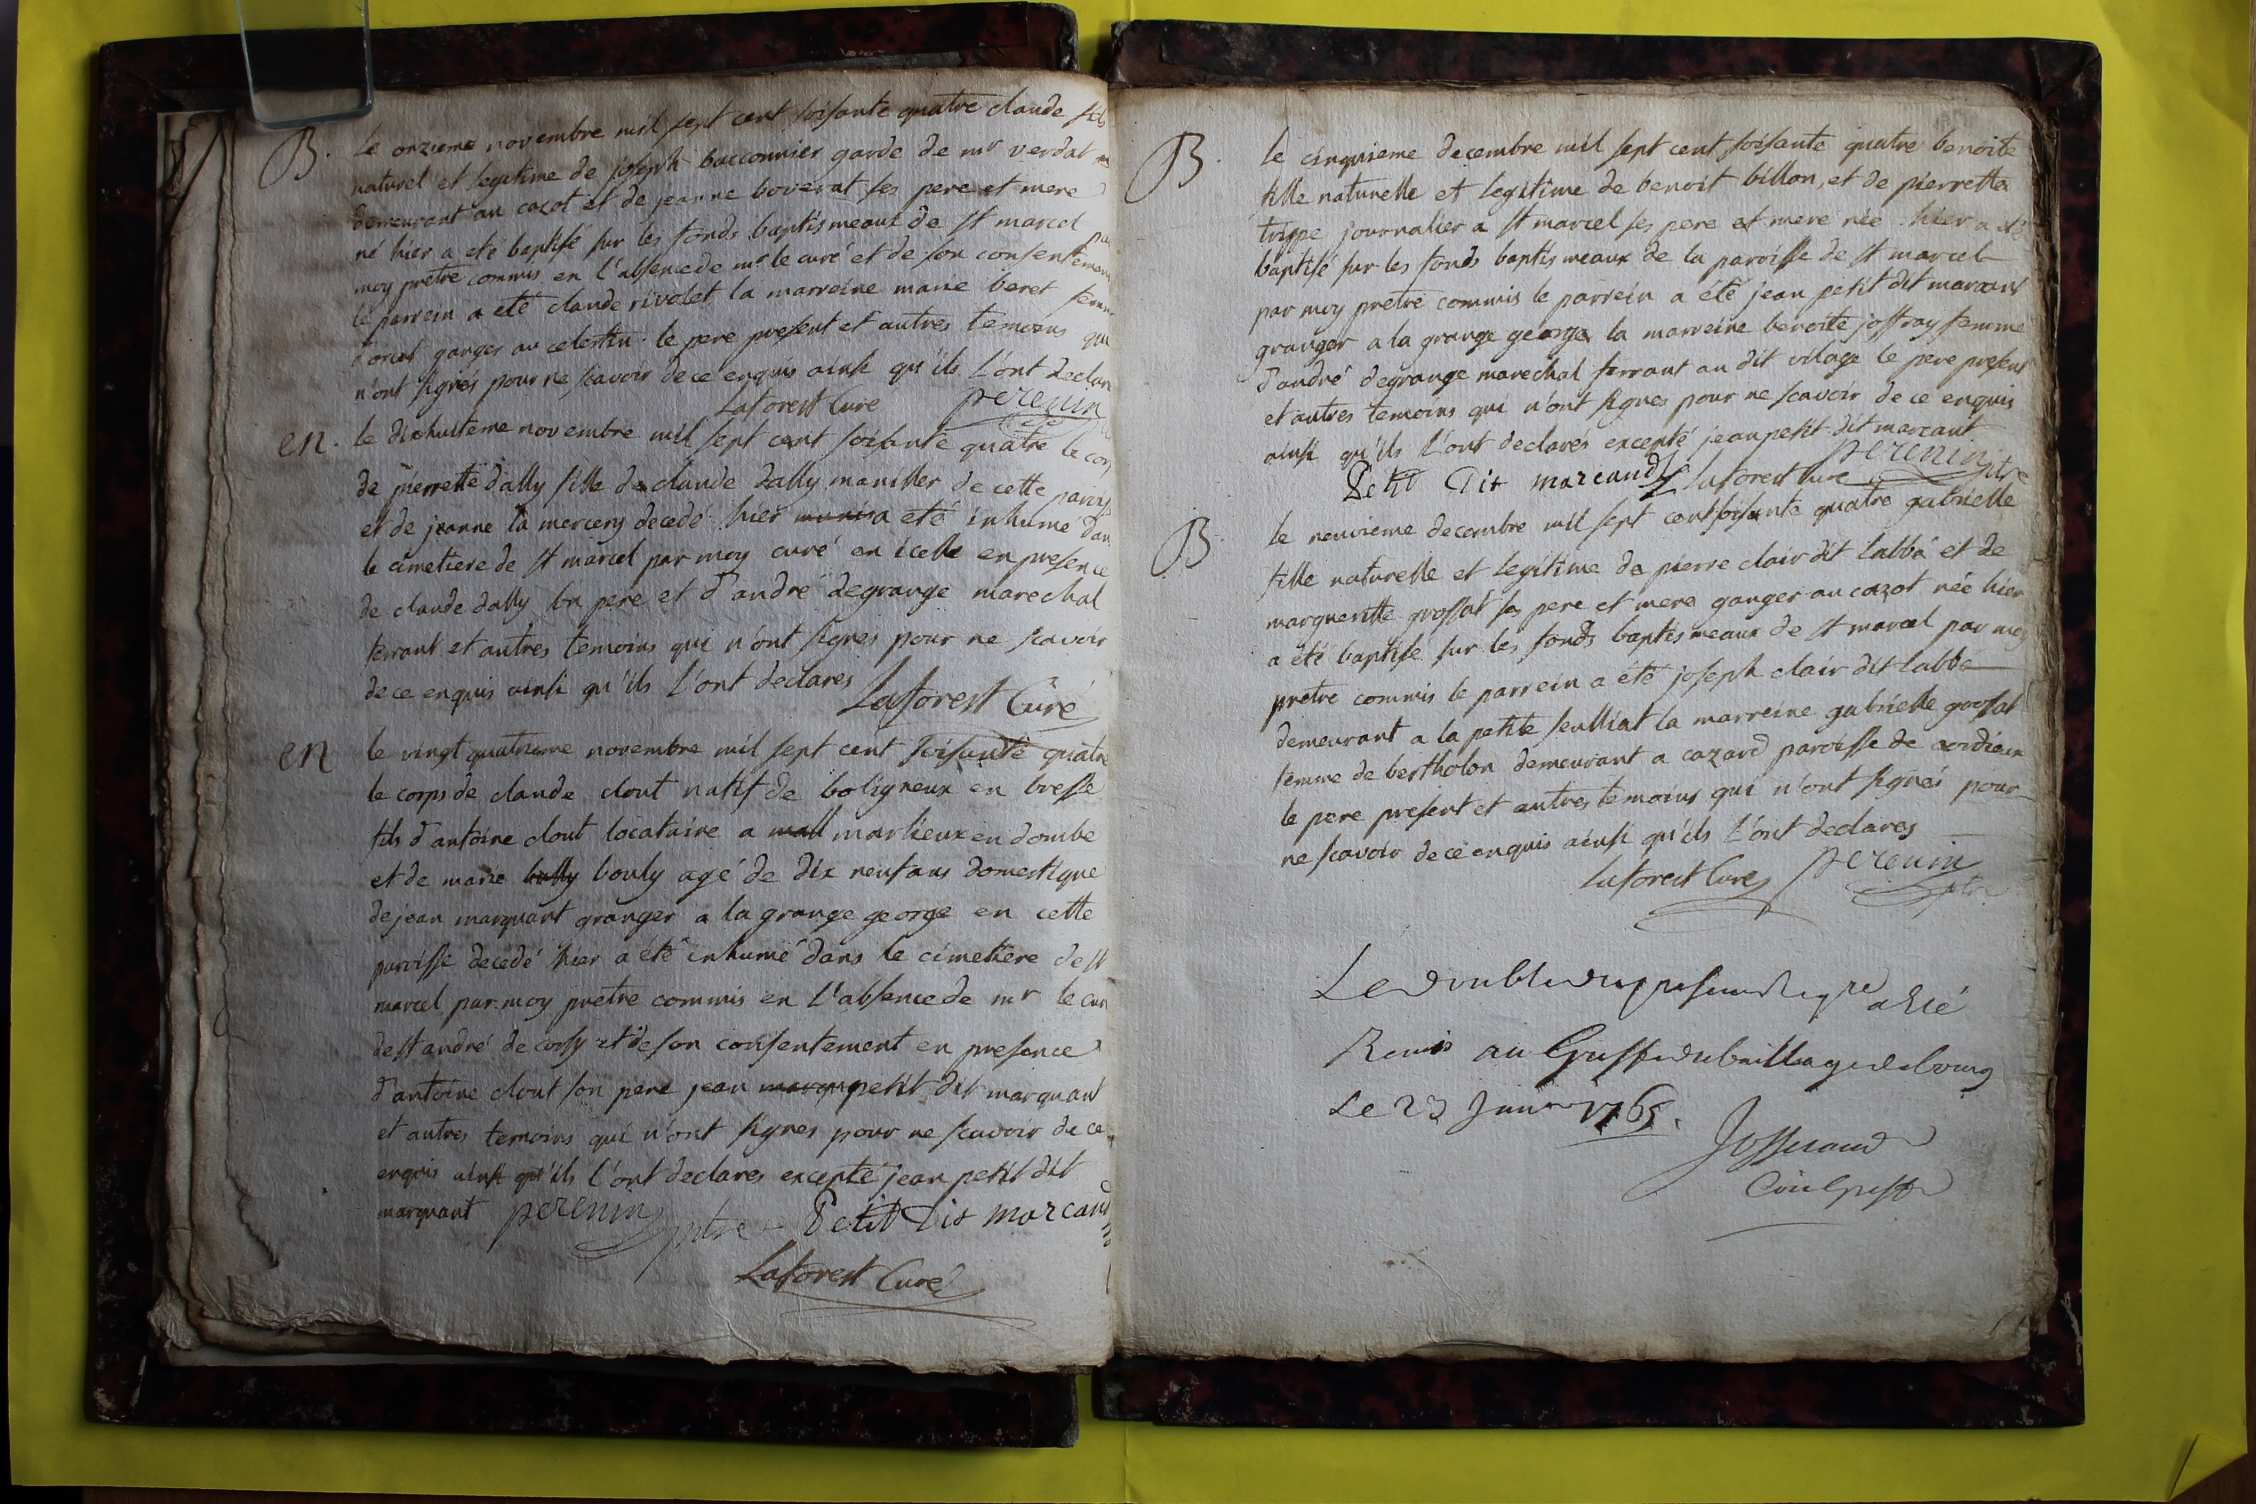 B. le onzieme novembre mil sept cent soisante quatre claude fils
naturel et legitime de joseph bacconnier garde de mr verdat
demeurant au cazot et de jeanne boverat ses pere et mere
né hier a eté baptisé sur les fonds baptismeaux de st marcel par
moy prêtre commis en l'absence de mr le curé et de son consentement
le parrein a eté claude rivolet la marreine marie beret femme
ganger au celestin le pere present et autres temoins qui
n'ont signés pour ne scavoir de ce enquis ainsi qu'ils l'ont declare
Laforest Curé perenin
en. le dixhuiteme novembre mil sept cent soisante quatre le corp
de pierrette dally fille de claude dally maniller de cette parois
et de jeanne la mercery decedé hier a eté inhume dans
le cimetiere de st marcel par moy curé en icelle en presence
de claude dally son pere et d'andré degrange marechal
ferrant et autres temoins qui n'ont signes pour ne scavoir
de ce enquis ainsi qu'ils l'ont declares
Laforest Curé
en le vingt quatrieme novembre mil sept cent soisante quatre
le corps de claude clout natif de boligneux en bresse
fils d'antoine clout locataire a mall marlieux en dombe
et de marie bully bouly agé de dix neuf ans domestique
de jean marquant granger a la grange george en cette
paroisse decedé hier a été inhumé dans le cimetiere de st
marcel par moy pretre commis en l'absence de mr le cure
de st andré de corsy et de son consentement en presence
d'antoine clout son pere jean marqu petit dit marquant
et autres temoins qui n'ont signes pour ne scavoir de ce
enquis ainsi qu'ils l'ont declares excepté jean petit dit
marquant perenin ptre Petit Dit marcand
Laforest Curé
B. le cinquieme decembre mil sept cent soisante quatre benoite
fille naturelle et legitime de benoit billon, et de pierrette
trippe journalier a st marcel ses pere et mere née hier a eté
baptisé sur les fonds baptismeaux de la paroisse de st marcel
par moy pretre commis le parrein a été jean petit dit marcant
granger a la grange george la marreine benoite joffray femme
d'andré degrange marechal ferrant au dit vilage le pere present
et autres temoins qui n'ont signes pour ne scavoir de ce enquis
ainsi qu'ils l'ont declarés excepté jean petit dit marcant
Petit Dit marcand Laforest Curé perenin ptre
B. le neuvieme decembre mil sept cent soisante quatre gabrielle
fille naturelle et legitime de pierre clair dit labbé et de
marguerite grossat ses pere et mere ganger au cazot née hier
a été baptisé sur les fonds baptismeaux de st marcel par moy
pretre commis le parrein a été joseph clair dit labbé
demeurant a la petite seulliat la marreine gabrielle grossat
femme de bertholon demeurant a cazard paroisse de cordieux
le pere present et autres temoins qui n'ont signés pour
ne scavoir de ce enquis ainsi qu'ils l'ont declares
Laforest Curé perenin ptre
Le double du present Regre a Eté
Remis au Greffe du bailliage de bourg
Le 23 Janer 1765.